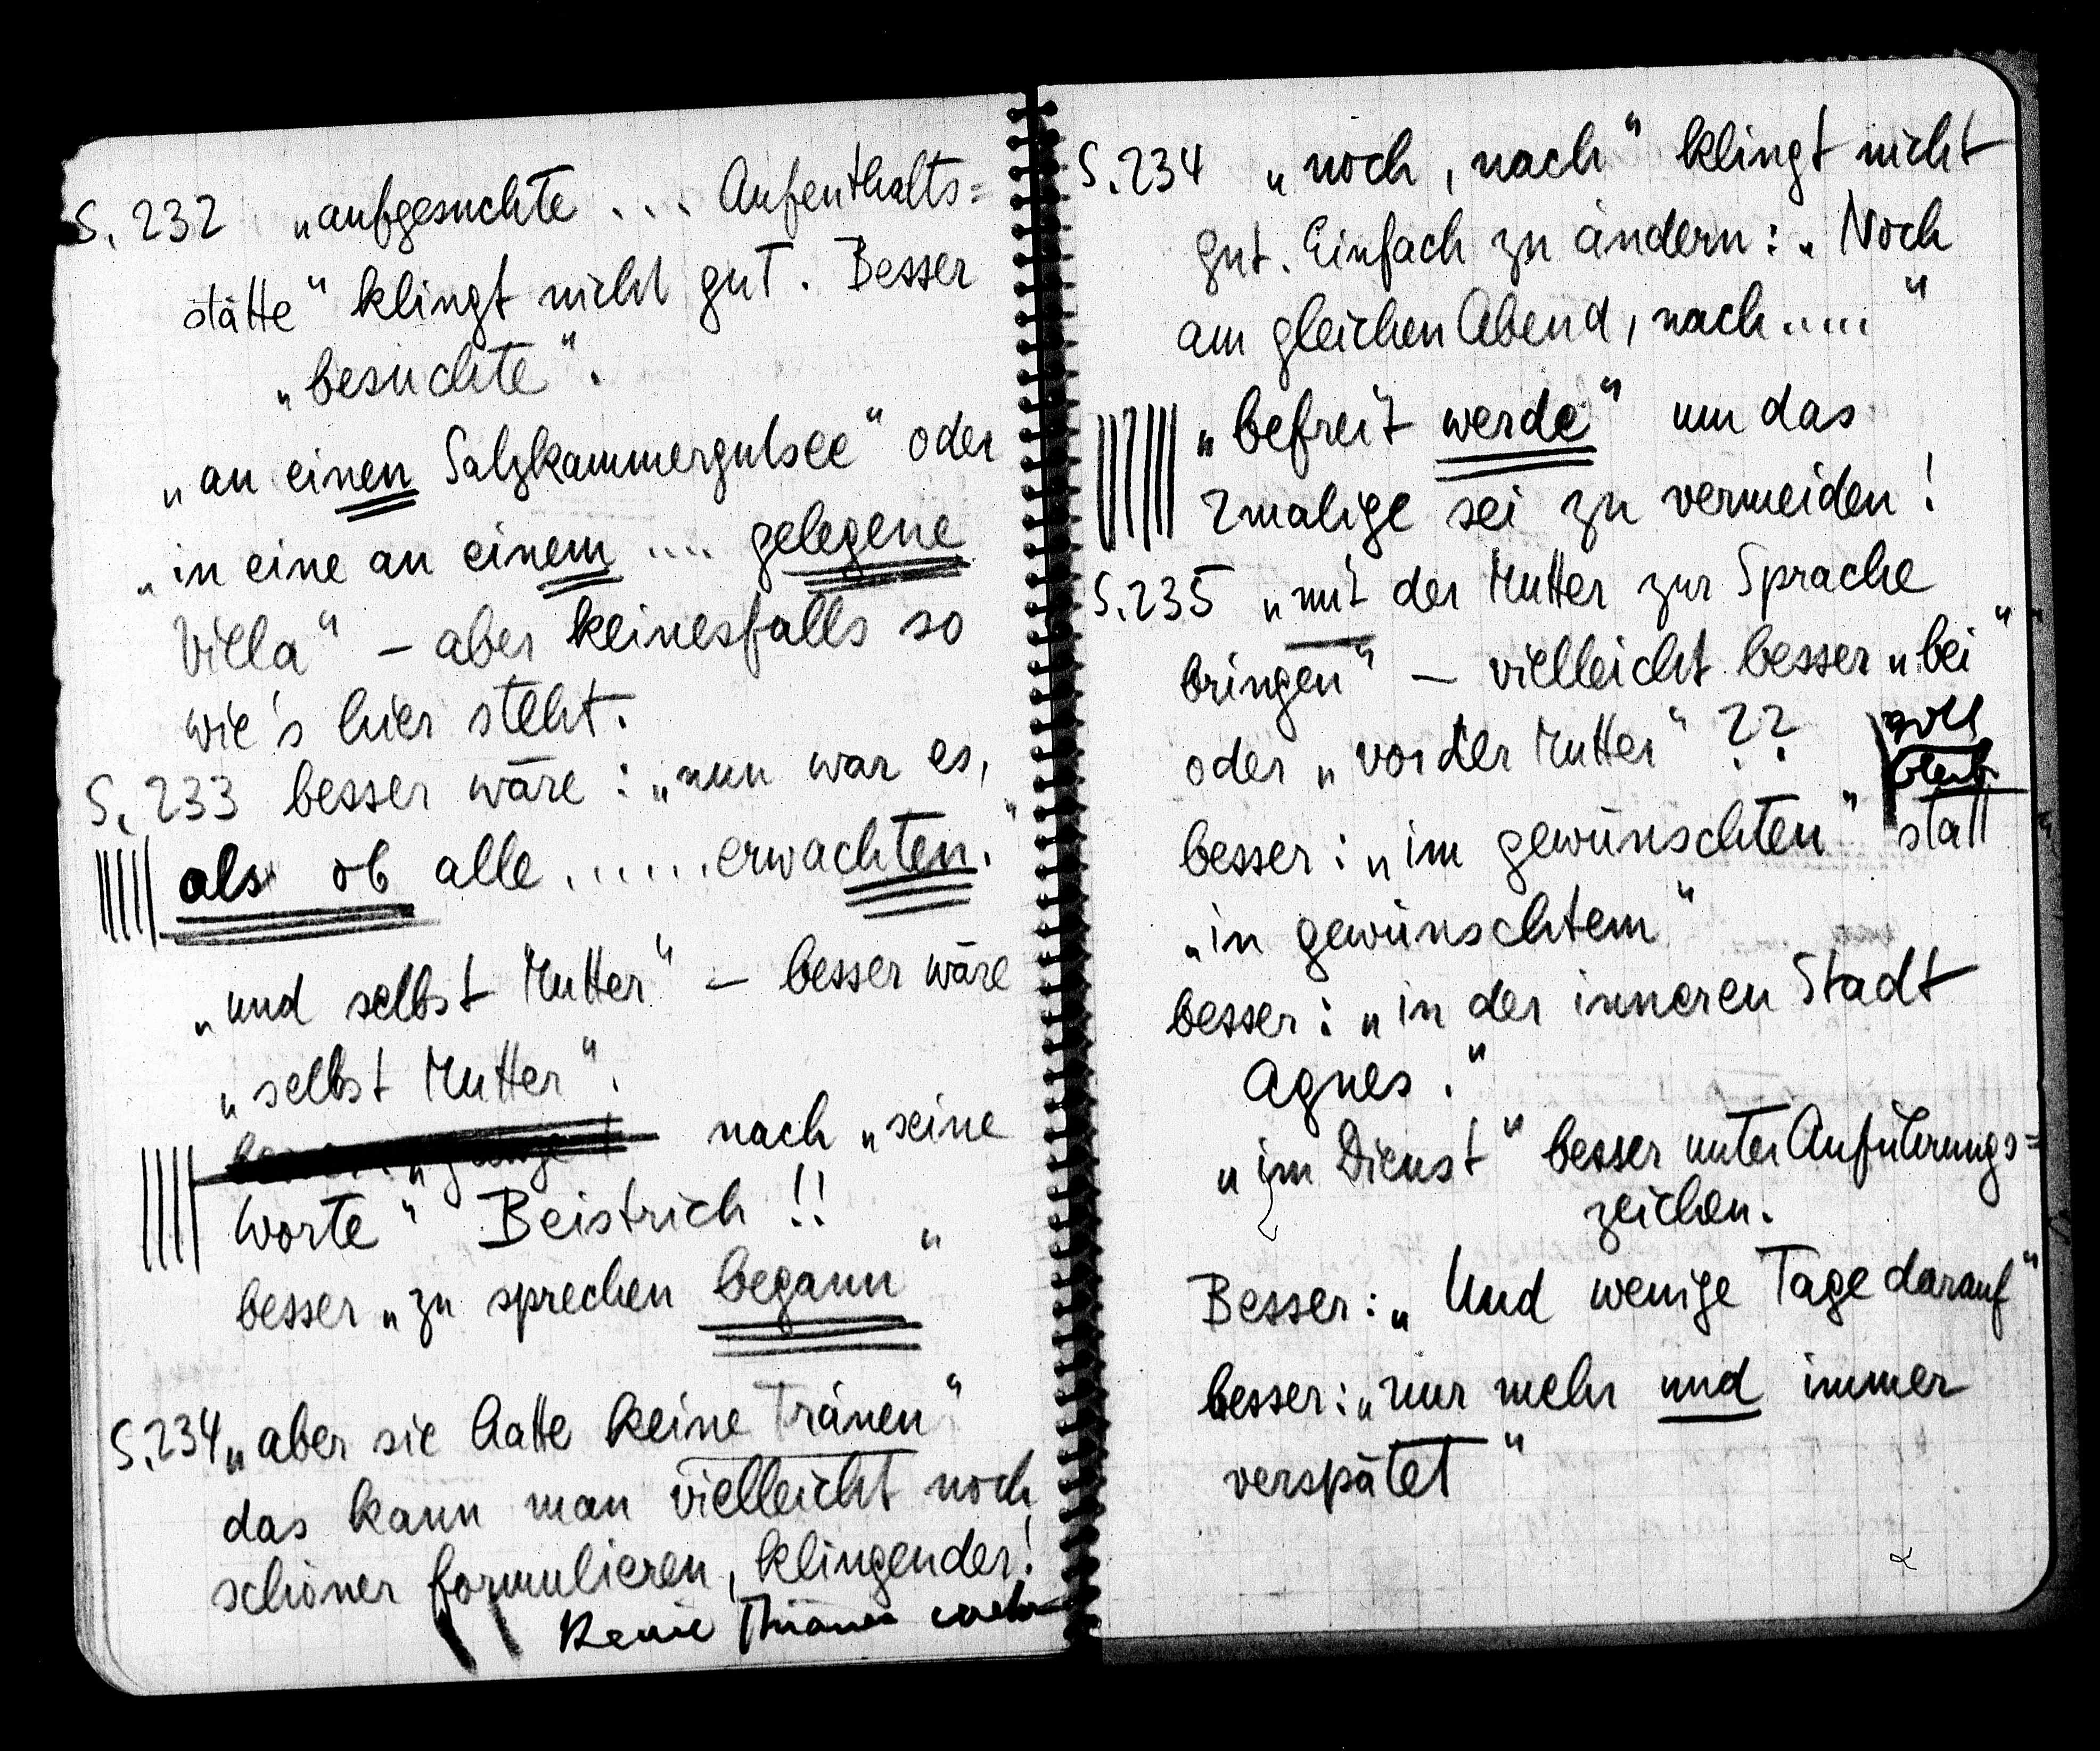 S. 232 „aufgesuchte .... Aufenthalts=
stätte" klingt nicht gut. Besser
„besuchte".
„an einen Salzkammergutsee" oder
„in eine an einem .... gelegene
Villa" – aber keinesfalls so
wie's hier steht.
S. 233 besser wäre: „nun war es,
als ob alle ...... erwachten."
„und selbst Mutter" – besser wäre
„selbst Mutter".
nach „seine
Worte" Beistrich!!
besser „zu sprechen begann"
S. 234 „aber sie hatte keine Tränen"
das kann man vielleicht noch
schöner formulieren, klingender!
Keine
S. 234 „noch, nach" klingt nicht
gut. Einfach zu ändern: „Noch
am gleichen Abend, nach ....."
„befreit werde" um das
2malige sei zu vermeiden!
S. 235 „mit der Mutter zur Sprache
bringen" – vielleicht besser „bei"
oder „vor der Mutter" ??
besser: „im gewünschten" statt
„in gewünschtem"
besser: „in der inneren Stadt
Agnes."
„im Dienst" besser unter Anführungs=
zeichen.
Besser: „Und wenige Tage darauf"
besser: „nur mehr und immer
verspätet"